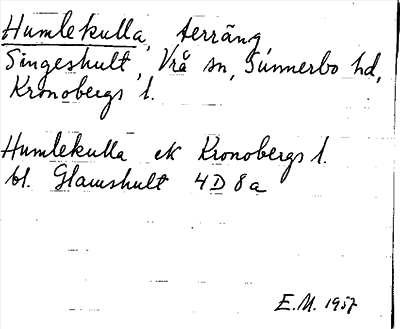 Humlekulla, terräng
Singeshult, Vrå sn, Sunnerbo hd,
Kronobergs l.
Humlekulla ek Kronobergs l.
bl. Glamshult 4D 8a
E.M. 1957